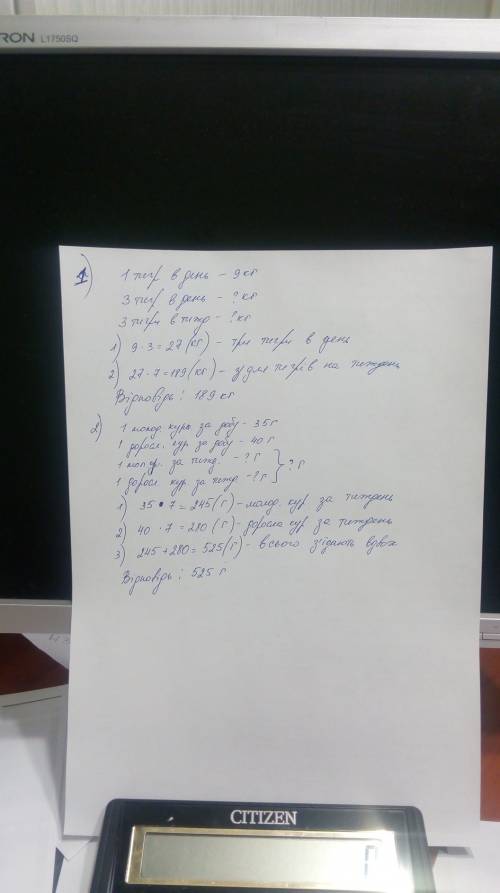 RON L1750SQ
1) 1 тигр в день - 9 кг
3 тигр в день - ? кг
3 тигри в тижд - ? кг
1) 9 · 3 = 27 (кг) - три тигри в день
2) 27 · 7 = 189 (кг) - для тигрів на тиждень
Відповідь: 189 кг
2) 1 молод. курк за добу - 35 г
1 доросл. кур за добу - 40 г
1 мол кур. за тижд. - ? г
1 доросл. кур за тижд - ? г } ? г
1) 35 · 7 = 245 (г) - молод. кур за тиждень
2) 40 · 7 = 280 (г) - доросла кур за тиждень
3) 245 + 280 = 525 (г) - всього з'їдають вдвох
Відповідь: 525 г
CITIZEN